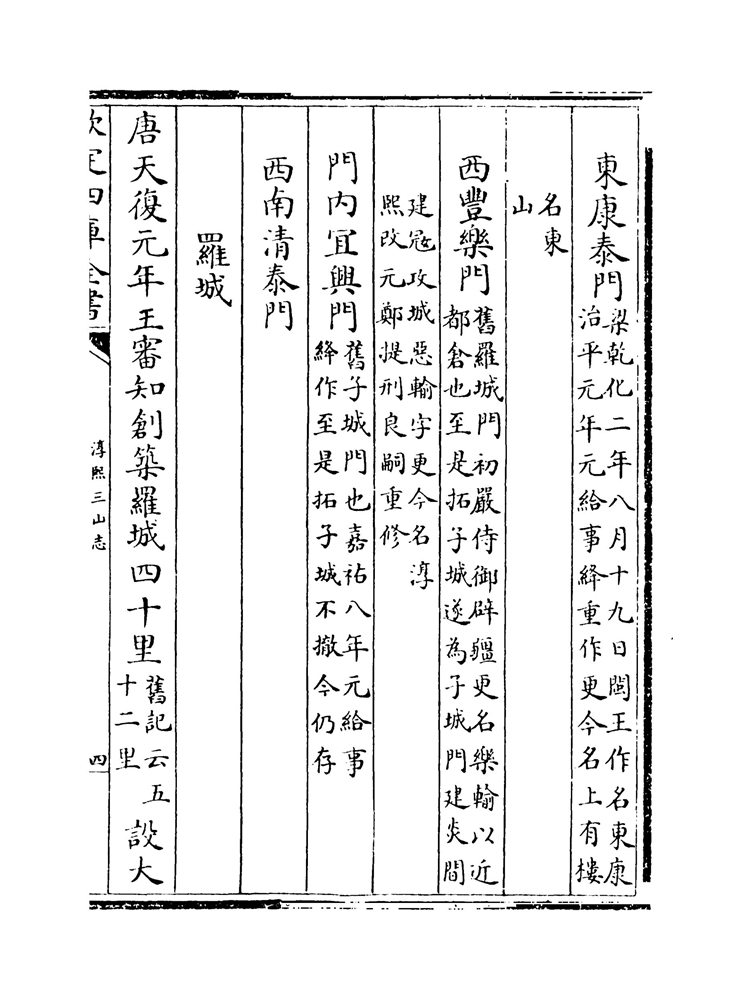 東康泰門梁乾化二年八月十九日閩王作名東康
治平元年元給事絳重作更今名上有樓
名東
山
西豐樂門舊羅城門初嚴侍御辟疆更名樂輸以近
都倉也至是拓子城遂為子城門建炎間
建冦攻城惡輸字更今名淳
熙改元鄭提刑良嗣重修
門内宜興門舊子城門也嘉祐八年元給事
絳作至是拓子城不撤今仍存
西南清泰門
羅城
唐天復元年王審知創築羅城四十里舊記云五
十二里設大
欽定四庫全書
淳熙三山志
四